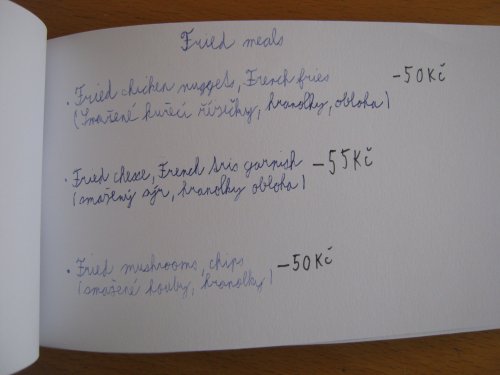 Fried meals
• Fried chicken nuggets, French fries -50Kč
(Smažené kuřecí řízečky, hranolky, obloha)
• Fried chesse, French bris garnish -55Kč
(smažený sýr, hranolky obloha)
• Fried mushrooms, chips -50Kč
(smažené houby, hranolky)